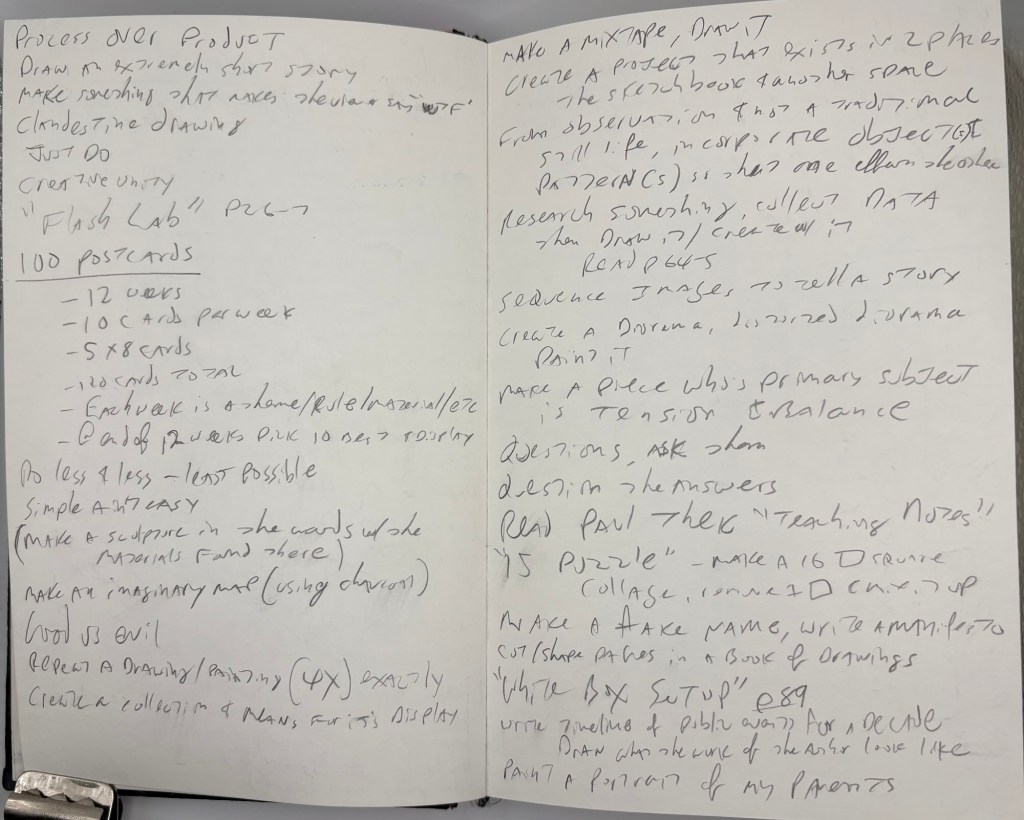 Process over Product
Draw an extremely short story
make something that makes the viewer say "WTF"
Clandestine drawing
Just Do
Creative unity
"Flash Lab" P26-7
100 postcards
- 12 weeks
- 10 cards per week
- 5 x 8 cards
- 120 cards total
- Each week is a theme/Rule/material/etc
- @ end of 12 weeks pick 10 best & display
Do less & less - least possible
Simple aint easy
(make a sculpture in the woods w/ the
materials found there)
make an imaginary map (using charcoal)
Good vs evil
Repeat a drawing/painting (4x) exactly
Create a collection & means for it's display
make a mixtape, Draw it
Create a project that exists in 2 places
the sketchbook & another space
From observation & not a traditional
still life, incorporate object(s) &
pattern(s) so that one effects the other
Research something, collect DATA
then Draw it/create w/ it
Read p 64-5
Sequence Images to tell a story
Create a Diorama, distorted diorama
Paint it
make a piece who's primary subject
is Tension & Balance
Questions, ask them
Question the answers
Read Paul Thek "Teaching Notes"
"15 Puzzle" - make a 16 □ square
Collage, remove 1 □ & mix it up
make a fake name, write a manifesto
cut/shape pages in a book of drawings
"White Box Setup" p89
write timeline of public events for a decade
Draw what the work of the artist look like
Paint a portrait of my parents